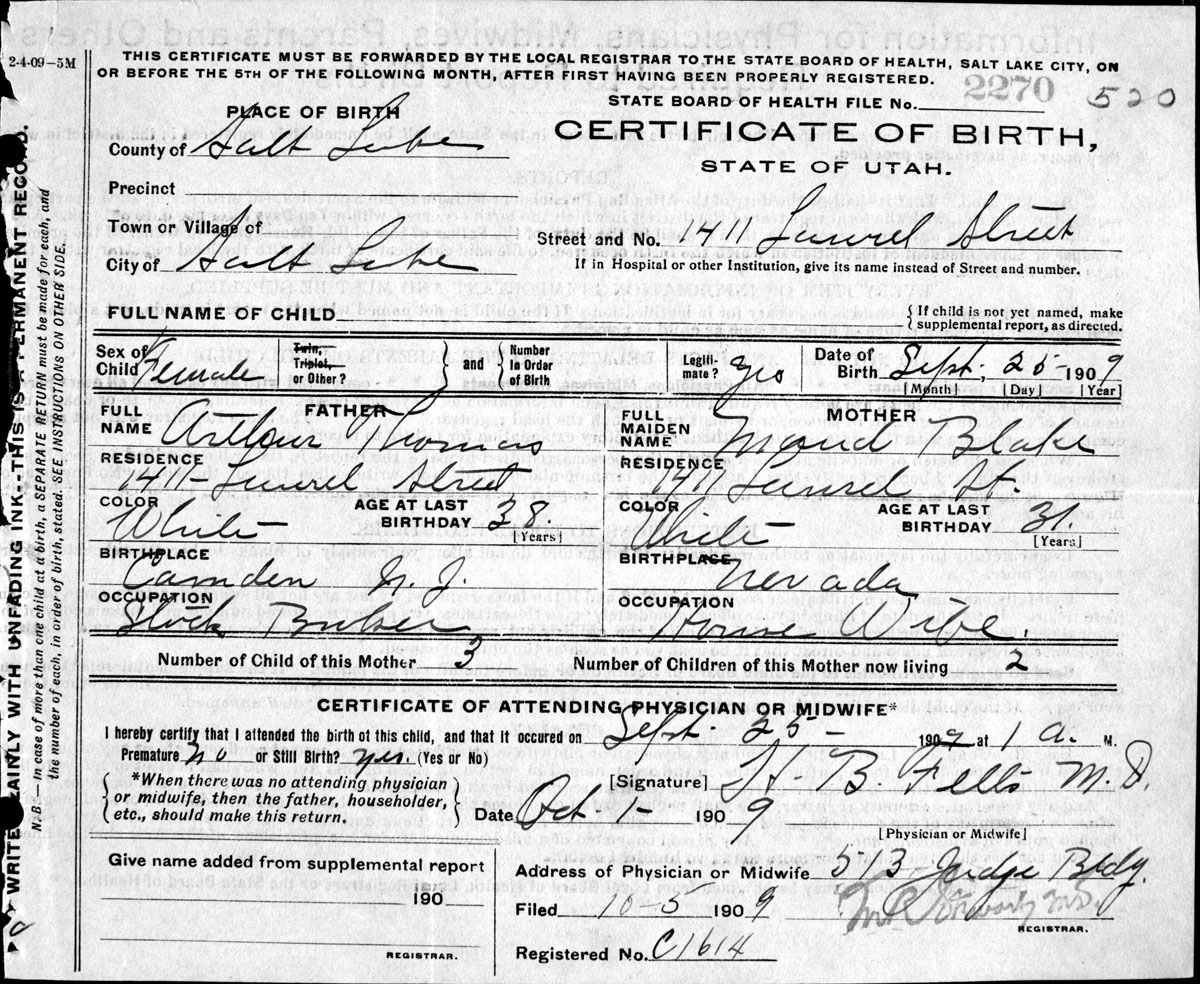 2-4-09-5M
THIS CERTIFICATE MUST BE FORWARDED BY THE LOCAL REGISTRAR TO THE STATE BOARD OF HEALTH, SALT LAKE CITY, ON
OR BEFORE THE 5TH OF THE FOLLOWING MONTH, AFTER FIRST HAVING BEEN PROPERLY REGISTERED.
STATE BOARD OF HEALTH FILE No. 2270 520
PLACE OF BIRTH
CERTIFICATE OF BIRTH,
STATE OF UTAH.
County of Salt Lake
Precinct
Town or Village of
Street and No. 1411 Laurel Street
City of Salt Lake
If in Hospital or other Institution, give its name instead of Street and number.
FULL NAME OF CHILD
If child is not yet named, make
supplemental report, as directed.
Sex of Child Female
Twin, Triplet, or Other?
and
Number In Order of Birth
Legitimate? yes
Date of Birth Sept. 25 1909
[Month] [Day] [Year]
FATHER
FULL NAME Arthur
RESIDENCE
1411- Laurel Street
COLOR White
AGE AT LAST BIRTHDAY 38
[Years]
BIRTHPLACE
Camden N. J.
OCCUPATION
Stock Broker
MOTHER
FULL MAIDEN NAME Maud Blake
RESIDENCE
1411 Laurel St.
COLOR White
AGE AT LAST BIRTHDAY 31.
[Years]
BIRTHPLACE
Nevada
OCCUPATION
House Wife.
Number of Child of this Mother 3
Number of Children of this Mother now living 2
CERTIFICATE OF ATTENDING PHYSICIAN OR MIDWIFE*
I hereby certify that I attended the birth of this child, and that it occured on Sept. 25- 1909 at 1 a. M.
Premature? No or Still Birth? yes. (Yes or No)
*When there was no attending physician
or midwife, then the father, householder,
etc., should make this return.
[Signature] B. Felts M.D.
Date Oct. 1- 1909
[Physician or Midwife]
Give name added from supplemental report
190
REGISTRAR.
Address of Physician or Midwife 513 Judge Bldg.
Filed 10-5 1909
REGISTRAR.
Registered No. C1614
WRITE PLAINLY WITH UNFADING INK--THIS IS A PERMANENT RECORD.
N. B.-In case of more than one child at birth, a SEPARATE RETURN must be made for each, and
the number of each, in order of birth, stated. SEE INSTRUCTIONS ON OTHER SIDE.